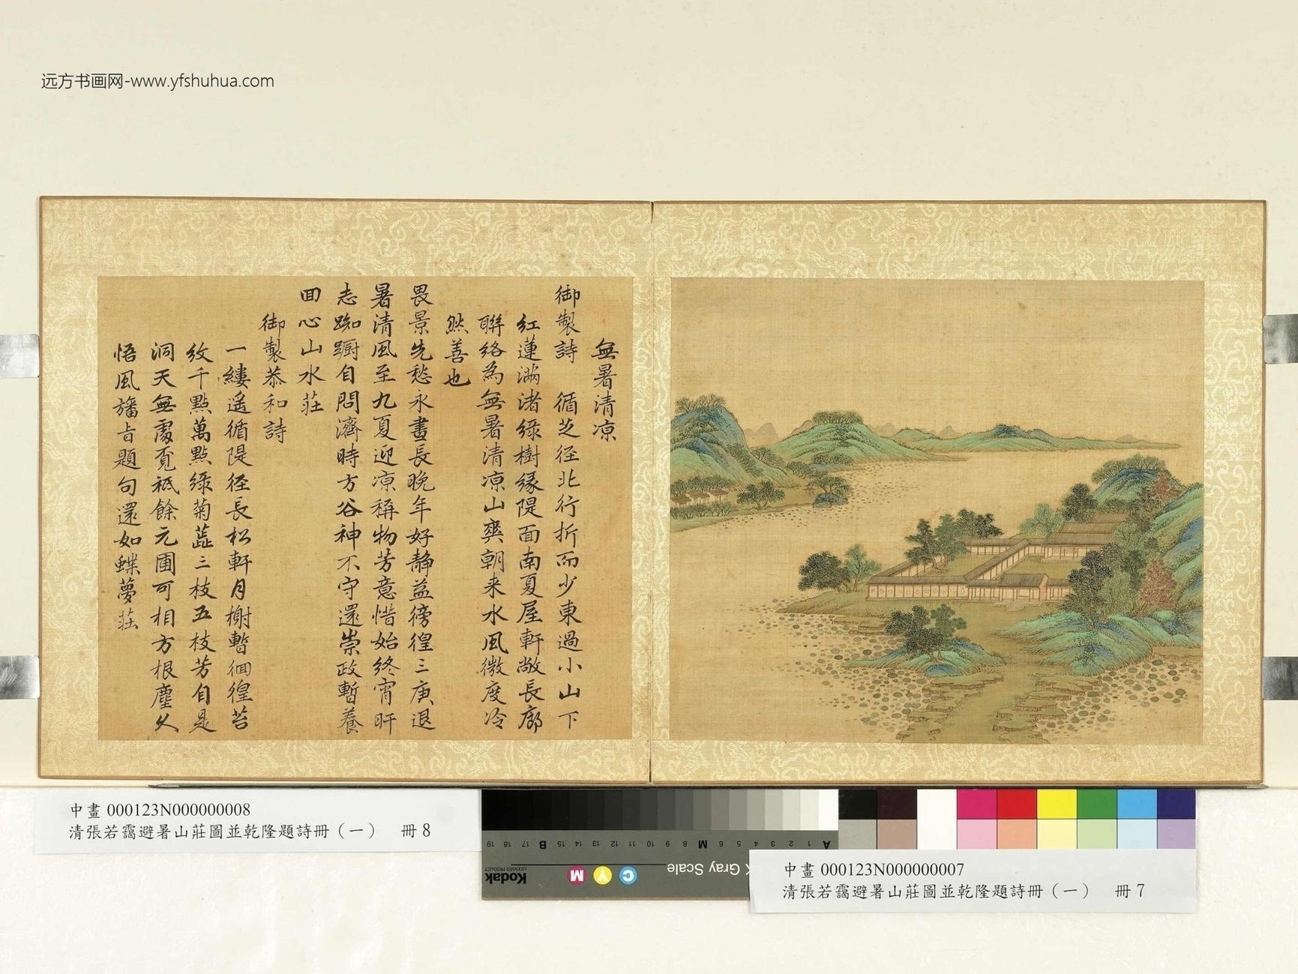 远方书画网-www.yfshuhua.com
無暑清凉
御製詩 循芝径北行折而少東過小山下
紅蓮滿渚綠樹緣隄面南夏屋軒敞長廊
聯絡為無暑清凉山爽朝來水風微度冷
然善也
畏景先愁永晝長晚年好靜益徬徨三庚退
暑清風至九夏迎凉稱物芳意惜始終宵旰
志踟蹰自問濟時方谷神不守還崇政暫養
回心山水莊
御製恭和詩
一縷遙循隄径長松軒月榭暫徊徨苔
紋千點萬點綠菊蕋三枝五枝芳自是
洞天無處覔祇餘元圃可相方根塵久
悟風旛旨題句還如蝶夢莊
中畫 000123N000000008
清張若靄避暑山莊圖並乾隆題詩冊（一） 冊 8
A 1 2 3 4 5 6 M 8 9 10 11 12 13 14 15 B 17 18 19
Gray Scale
C Y M
Kodak
中畫 000123N000000007
清張若靄避暑山莊圖並乾隆題詩冊（一） 冊 7